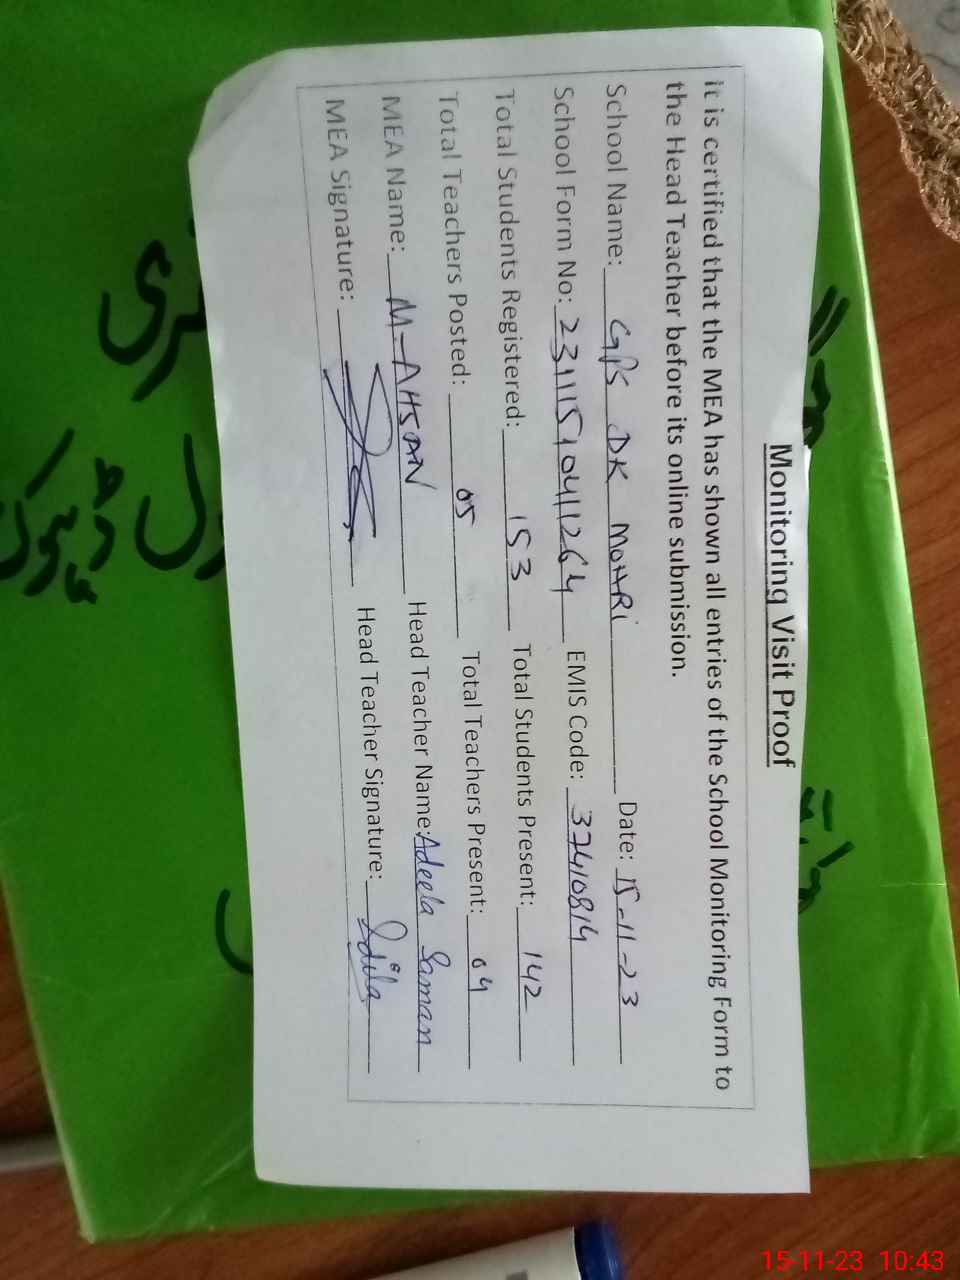 Monitoring Visit Proof
it is certified that the MEA has shown all entries of the School Monitoring Form to
the Head Teacher before its online submission.
School Name: GPS DK MOHRi Date: 15-11-23
School Form No: 23111510411264 EMIS Code: 37410814
Total Students Registered: 153 Total Students Present: 142
Total Teachers Posted: 05 Total Teachers Present: 04
MEA Name: M-AHSAN Head Teacher Name: Adeela Saman
MEA Signature: Head Teacher Signature: Adila
15-11-23 10:43